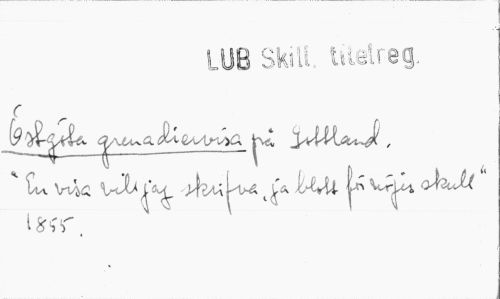 LUB Skill. titelreg.
Östgöta grenadiervisa på Gottland.
"En visa vill jag skrifva, ja blott för nöjes skull"
1855.